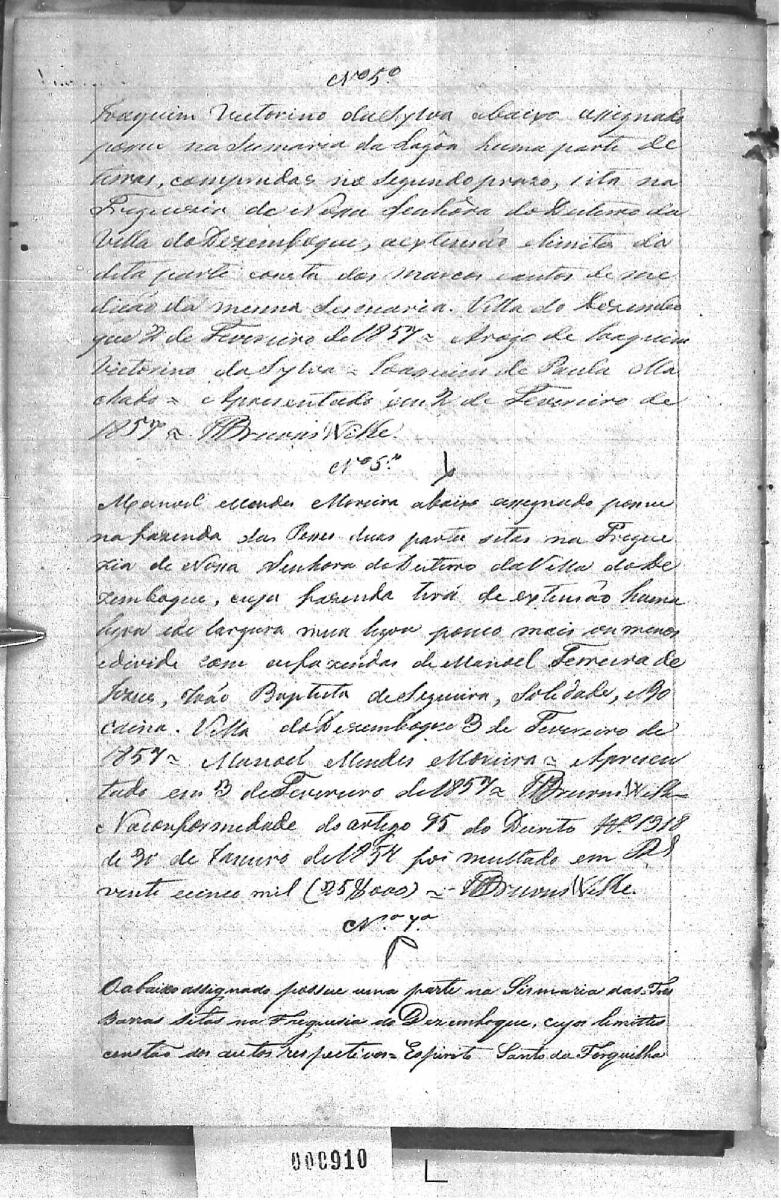 Nº 5º
Joaquim Victorino da Sylva abaixo assignado
possue na Sismaria da Lagôa huma parte de
terras, compradas no segundo prazo, sita na
Freguezia de Nossa Senhôra do Dezterro da
Villa do Dezemboque, a extensão e limites da
dita parte consta dos marcos e autos de me
dicão da mesma Sesmaria. Villa do Dezembo
que 2 de Fevereiro de 1857 = Arogo de Joaquim
Victorino da Sylva = Joaquim de Paula Ma
chado = Apresentado em 2 de Fevereiro de
1857 =
Nº 5º
Manoel Mendes Moreira abaixo assignado possue
na fazenda das duas partes sitas na Fregue
zia de Nossa Senhora do Dezterro da Villa do De
zemboque, cuja fazenda terá de extensão huma
legoa e de largura mea legoa pouco mais ou menos
e divide com as fazendas de Manoel Ferreira de
Jezus, João Baptista de Sequeira, Soledade, e Bo
caina. Villa do Dezemboque 3 de Fevereiro de
1857 = Manoel Mendes Moreira = Apresen
tado em 3 de Fevereiro de 1857 =
Na conformedade do artigo 95 do Decreto Nº 1318
de 30 de Janeiro de 1854 foi multado em RS
vente e cinco mil (25$000) =
Nº 7º
O abaixo assignado possue uma parte na Sismaria das Tres
Barras sitas na Freguesia do Dezemboque, cujos limittes
constão dos autos respectivos = Espirito Santo da Forquilha
000910